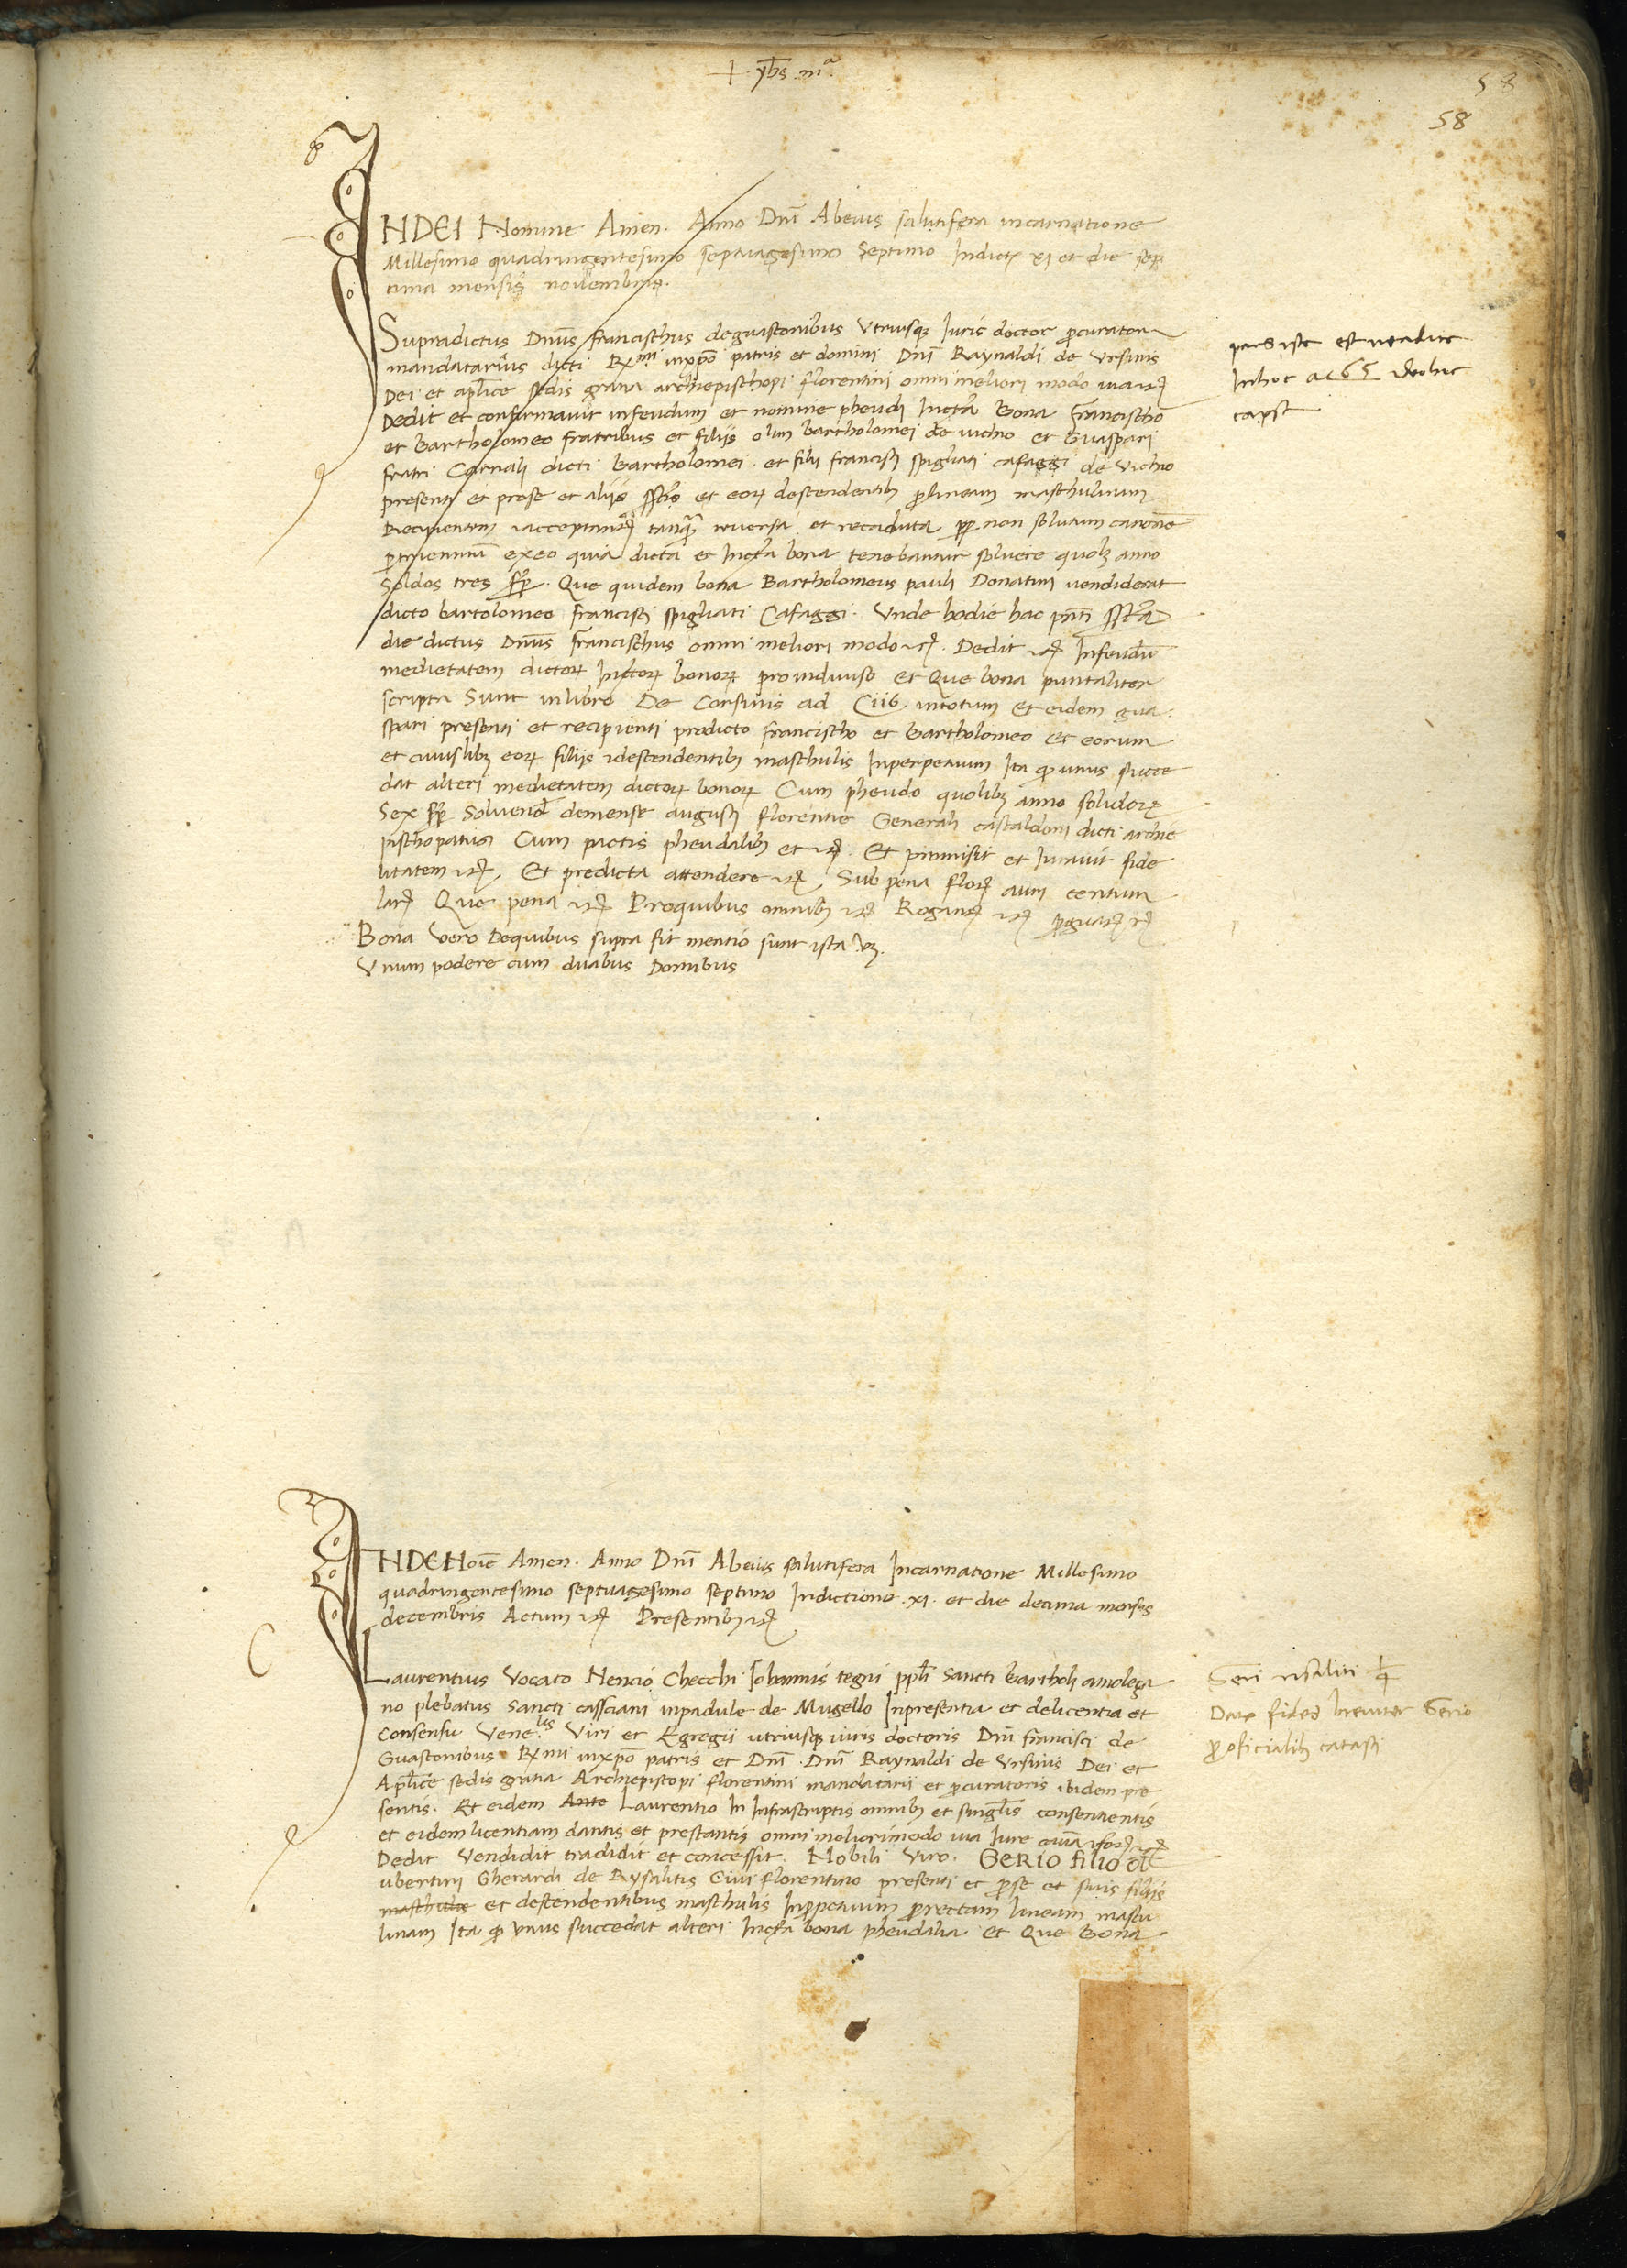 + yhs mª
58
58
INDEI Nomine Amen. Anno Dnī Abeius salutifera incarnatione
Millesimo quadringentesimo septuagesimo Septimo Indictꝭ xi et die sep
tima mensis novembris.
Supradictus Dnūs francischus deguasconibus Utriusqꝫ Iuris doctor procurator
mandatarius dicti Rx.mi inxpō patris et domini Dnī Raynaldi de Ursinis
Dei et aplīce sedis gratia archiepischopi florentini omni meliori modo
Dedit et confirmavit infeudum et nomine pheudi Infrā Bona francischo
et Bartholomeo fratribus et filiis olim bartholomei de vichio et Guaspari
fratri Carnali dicti bartholomei. et filii francisci spigliati cafaggi de Vichio
presenti et prose et aliis et eorꝝ descendentibꝫ prolineam maschulinam
Recipientem tanqꝫ reversa et recaduta non solutum canone
ptriennium exeo quia dicta et Infrā bona tenebantur solvere quolꝫ anno
Soldos tres. Que quidem bona Bartholomeus pauli Donatini vendiderat
dicto bartolomeo francisci spigliati Cafaggi. Unde hodie hac pnti
die dictus Dnūs francischus omni meliori modo. Dedit Infeudū
medietatem dictorꝝ bonorꝝ proindiviso et Que bona puntaliter
scripta Sunt inlibro De Corsinis ad C116. intotum et eidem gua
spari presenti et recipienti prodicto francischo et bartholomeo et eorum
et cuiuslibꝫ eorꝝ filiis descendentibꝫ maschulis Inperpetuum Ita qꝫ unus succe
dat alteri medietatem dictorꝝ bonorꝝ Cum pheudo quolibꝫ anno solidorꝝ
Sex Solvend demense augusti florentie Generali castaldoni dicti archie
pischopatus Cum pactis pheudalibꝫ et. Et promisit et Iuravit fide
litatem. Et predicta attendere. Sub pena florꝭ auri centum
largꝭ Que pena Proquibus omnibꝫ Rogans
Bona vero Dequibus supra fit mentio sunt ista vꝫ.
Unum podere cum duabus Domibus
pars iste est readucta
Inhoc ac 65
INDEI Noīe Amen. Anno Dnī Abeius salutifera Incarnatione Millesimo
quadringentesimo septuagesimo septimo Indictione .xi. et die decima mensis
decembris Actum Presentibꝫ
C
Laurentius Vocato Nencio Checchi Iohannis tegni pplī Sancti bartholi amolega
no plebatus Sancti cassciani inpadule de Mugello Inpresentia et delicentia et
Consensu Vene.lis Viri et Egregii utriusqꝫ iuris doctoris Dnī francisci de
Guasconibus Rx mi inxpō patris et Dnī. Dnī Raynaldi de Ursinis Dei et
Aplīce sedis gratia Archiepiscopi florentini mandatarii et procuratoris ibidem pre
sentis. Et eidem Ante Laurentio In Infrascriptis omnibꝫ et singlīs consentientis
et eidem licentiam dantis et prestantis omni meliorimodo via Iure
Dedit Vendidit tradidit et concessit. Nobili Viro. Gerio filio olī
ubertini Gherardi de Rysalitis Civi florentino presenti et prose et suis filiis
maschulis et descendentibus maschulis Inperpetuum prorectam lineam mascu
linam Ita qꝫ Unus succedat alteri Infrā bona pheudalia et Que Bona
Geri risaliti
Data fides breviter Gerio
proficialibꝫ catasti